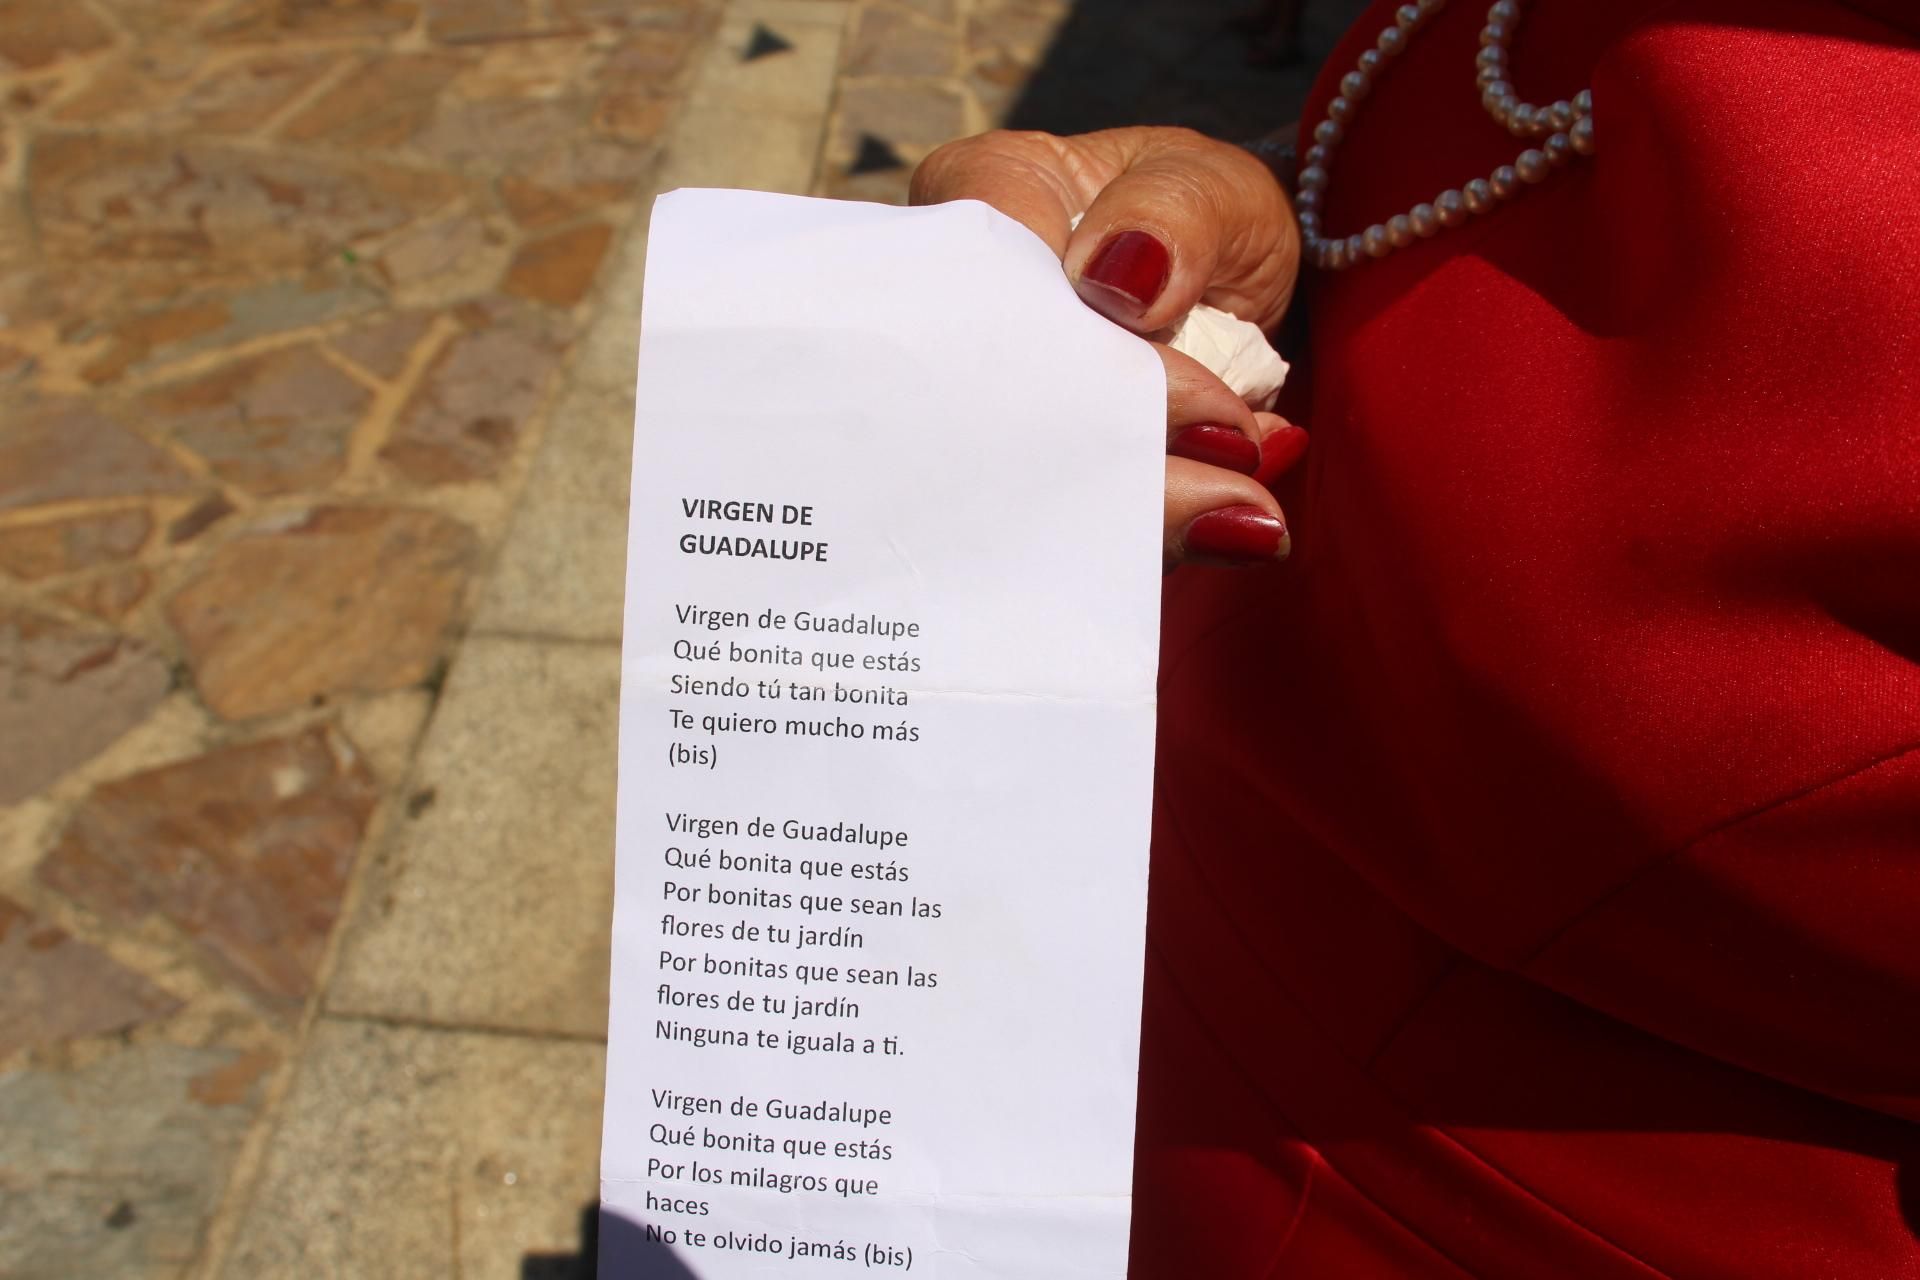 VIRGEN DE
GUADALUPE
Virgen de Guadalupe
Qué bonita que estás
Siendo tú tan bonita
Te quiero mucho más
(bis)
Virgen de Guadalupe
Qué bonita que estás
Por bonitas que sean las
flores de tu jardín
Por bonitas que sean las
flores de tu jardín
Ninguna te iguala a ti.
Virgen de Guadalupe
Qué bonita que estás
Por los milagros que
haces
No te olvido jamás (bis)